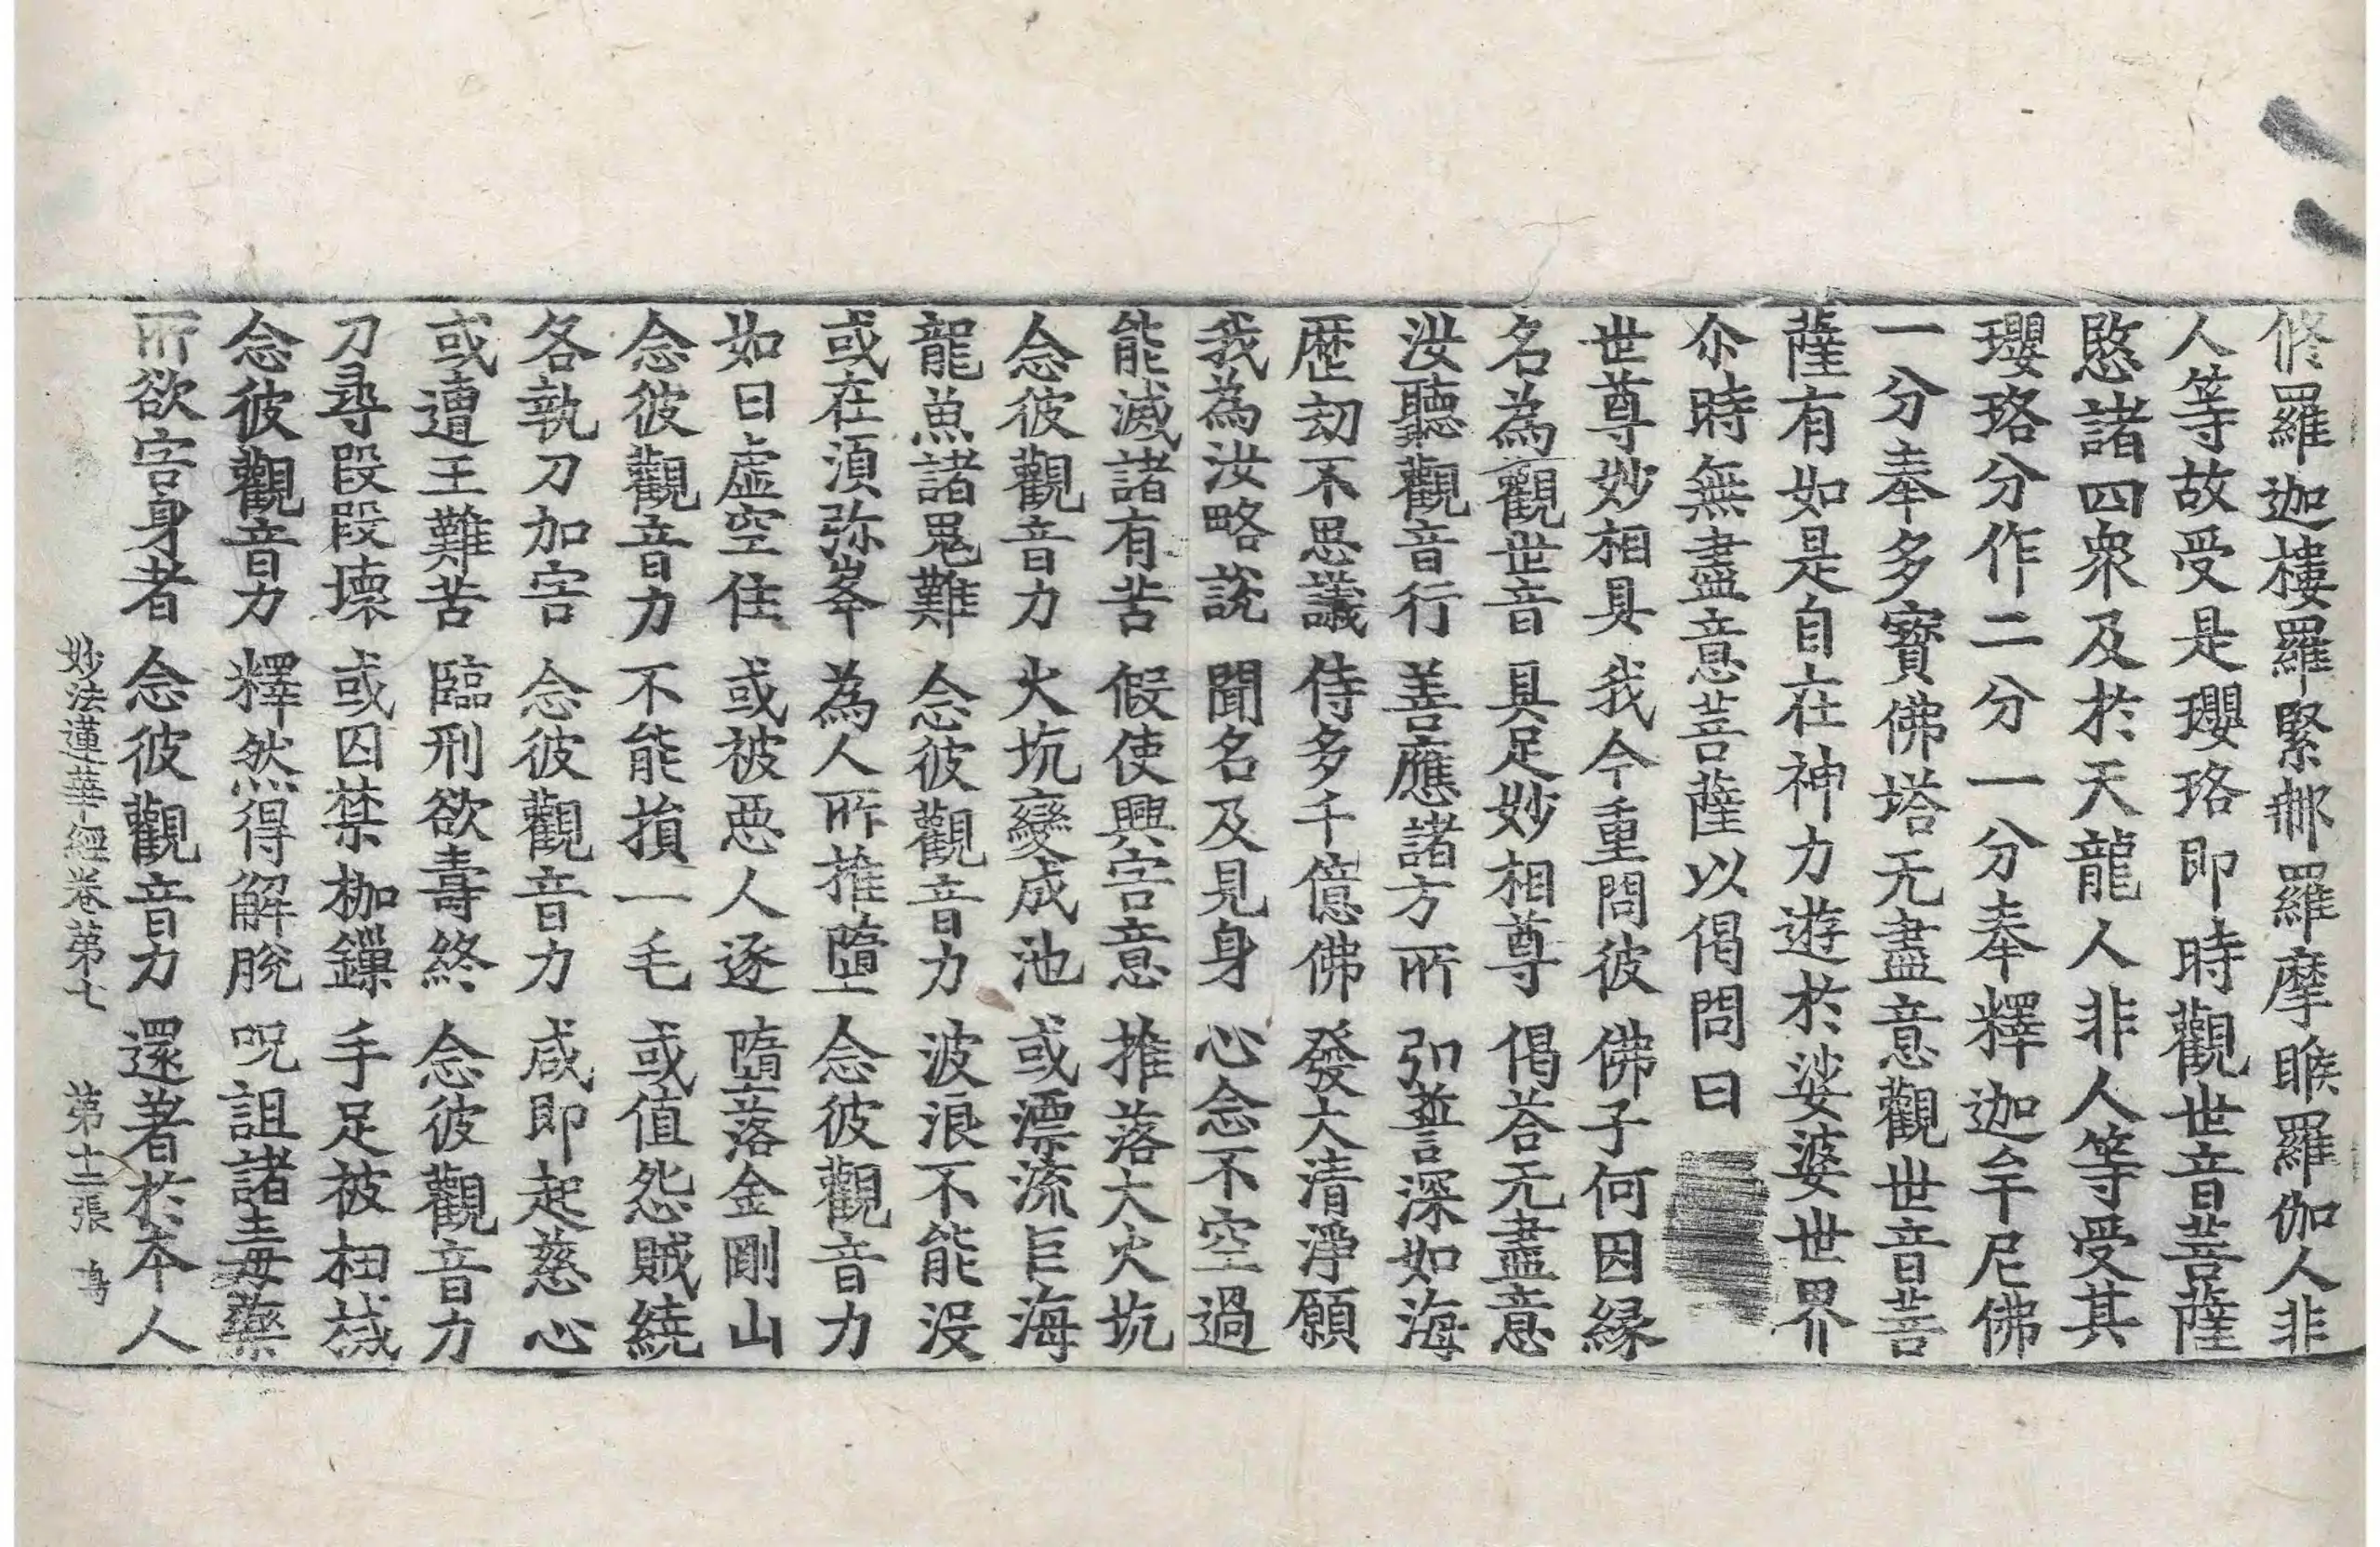 修羅迦樓羅緊那羅摩睺羅伽人非
人等故受是瓔珞即時觀世音菩薩
愍諸四衆及於天龍人非人等受其
瓔珞分作二分一分奉釋迦牟尼佛
一分奉多寶佛塔无盡意觀世音菩
薩有如是自在神力遊於娑婆世界
尒時無盡意菩薩以偈問曰
世尊妙相具 我今重問彼 佛子何因緣
名為觀世音 具足妙相尊 偈荅无盡意
汝聽觀音行 善應諸方所 弘誓深如海
歷劫不思議 侍多千億佛 發大清淨願
我為汝略說 聞名及見身 心念不空過
能滅諸有苦 假使興害意 推落大火坑
念彼觀音力 火坑變成池 或漂流巨海
龍魚諸鬼難 念彼觀音力 波浪不能没
或在須弥峯 為人所推墮 念彼觀音力
如日虛空住 或被惡人逐 墮落金剛山
念彼觀音力 不能損一毛 或值怨賊繞
各執刀加害 念彼觀音力 咸即起慈心
或遭王難苦 臨刑欲壽終 念彼觀音力
刀尋段段壞 或囚禁枷鏁 手足被杻械
念彼觀音力 釋然得解脫 呪詛諸毒藥
所欲害身者 念彼觀音力 還著於本人
妙法蓮華經卷第七 第十二張